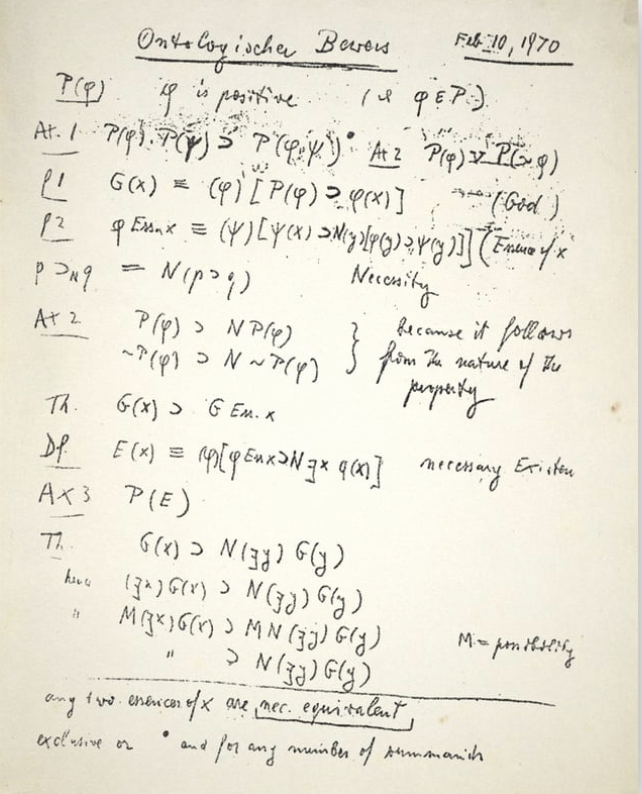 Ontologischer Beweis Feb 10, 1970
P(φ) φ is positive (ie φ ε P.)
At. 1 P(φ). P(ψ) ⊃ P(φ.ψ) • At 2 P(φ) ∨ P(~φ)
P1 G(x) ≡ (φ) [P(φ) ⊃ φ(x)] (God)
P2 φ Ess. x ≡ (ψ) [ψ(x) ⊃ N(y)[φ(y) ⊃ ψ(y)]] (Essence of x
p ⊃N q = N(p ⊃ q) Necessity
At 2 P(φ) ⊃ N P(φ) } because it follows
~P(φ) ⊃ N ~ P(φ) } from the nature of the
property
Th. G(x) ⊃ G Ess. x
Df. E(x) ≡ (φ)[φ Ess x ⊃ N ∃x φ(x)] necessary Existen
Ax 3 P(E)
Th. G(x) ⊃ N(∃y) G(y)
hence (∃x) G(x) ⊃ N(∃y) G(y)
" M(∃x) G(x) ⊃ MN(∃y) G(y) M = possibility
" ⊃ N(∃y) G(y)
any two essences of x are nec. equivalent
exclusive or • and for any number of summands